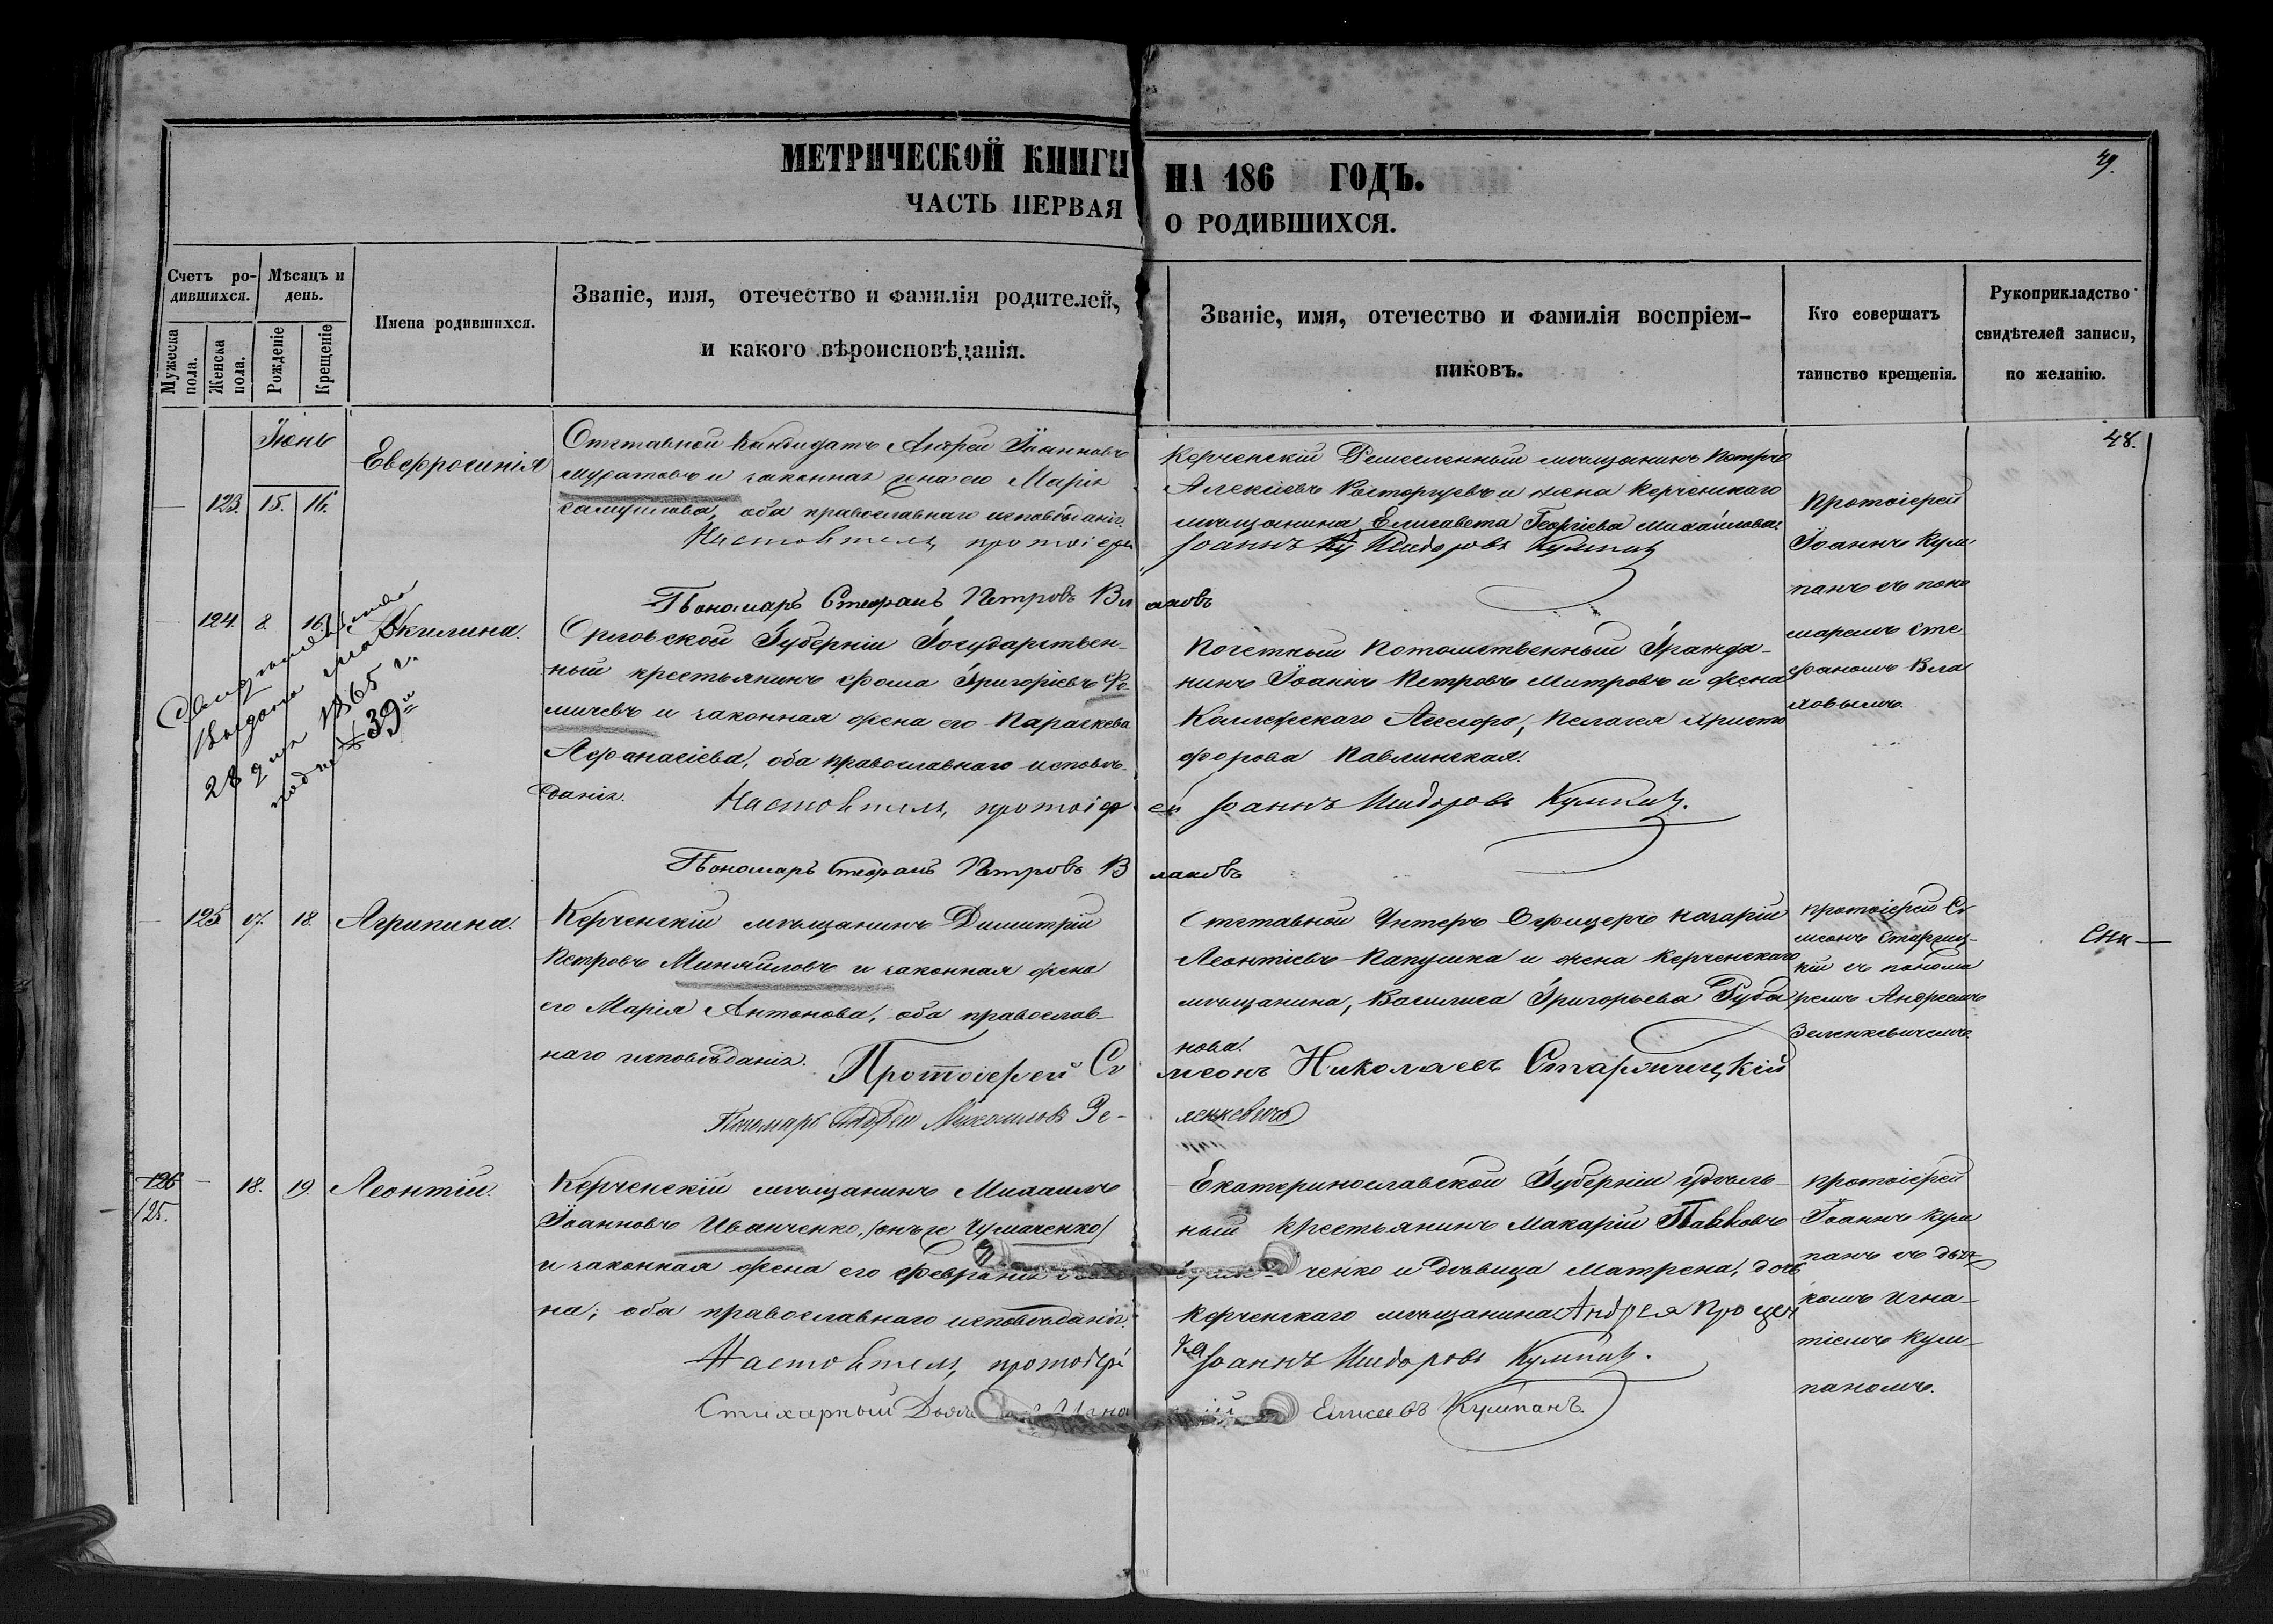 МЕТРИЧЕСКОЙ КНИГИ НА 186 ГОДЪ.
49.
ЧАСТЬ ПЕРВАЯ О РОДИВШИХСЯ.
Счетъ ро-
дившихся.
Мужеска пола.
Женска пола.
Мѣсяцъ и
день.
Рожденіе
Крещеніе
Имена родившихся.
Званіе, имя, отечество и фамилія родителей,
и какого вѣроисповѣданія.
Званіе, имя, отечество и фамилія воспріем-
никовъ.
Кто совершатъ
таинство крещенія.
Рукоприкладство
свидѣтелей записи,
по желанію.
48.
Іюнь
123. 15. 16.
Евфросинія
Отставной Кандидатъ Андрей Іоанновъ
Муратовъ и законная жена его Марія
Самуилова, оба православнаго исповѣданія.
Настоятель, протоіерей Іоаннъ Исидоровъ Кумпанъ
Пономарь Стефанъ Петровъ Влаховъ
Керченскій Ремесленный мѣщанинъ Петръ
Алексіевъ Расторгуевъ и жена Керченскаго
мѣщанина, Елисавета Георгіева Михайлова.
Протоіерей
Іоаннъ Кум
панъ съ поно
маремъ Сте
фаномъ Вла
ховымъ.
124. 8. 16. Акилина.
Свидѣтельство
выдано
28 1865 г.
под № 39
Орловской Губерніи Государствен-
ный крестьянинъ Фома Григоріевъ Фо-
мичевъ и законная жена его Параскева
Афанасіева, оба православнаго исповѣ-
данія. Настоятель, протоіерей Іоаннъ Исидоровъ Кумпанъ.
Пономарь Стефанъ Петровъ Влаховъ
Почетный Потомственный Гражда-
нинъ Іоаннъ Петровъ Митровъ и жена
Коллежскаго Асесора, Пелагея Христо
форова Павлинская.
125 17. 18. Агрипина.
Керченскій мѣщанинъ Димитрій
Петровъ Миняиловъ и законная жена
его Марія Антонова, оба православ-
наго исповѣданія. Протоіерей Симеонъ Николаевъ Старлицкій
Пономарь Андрей Зеленкевичъ
Отставной Унтеръ Офицеръ Назарій
Леонтіевъ Папушка и жена Керченскаго
мѣщанина, Василиса Григорьева Руба
нова.
Протоіерей Си
меонъ
кій съ понома
ремъ Андреемъ
Зеленкевичемъ.
126
125. 18. 19. Леонтій.
Керченскій мѣщанинъ Михаилъ
Іоанновъ Иванченко, (онъ же Чумаченко)
и законная жена его Февронія
на; оба православнаго исповѣданія.
Настоятель, протоіерей Іоаннъ Исидоровъ Кумпанъ.
Стихарный Дьячекъ Игнатій Елисеевъ Кумпанъ.
Екатеринославской Губерніи удѣль-
ный крестьянинъ Макарій Павловъ
ченко и дѣвица Матрена, дочь
Керченскаго мѣщанина Андрея Процен
ка
Протоіерей
Іоаннъ Кум
панъ съ дьяч
комъ Игна-
тіемъ Кум-
паномъ.